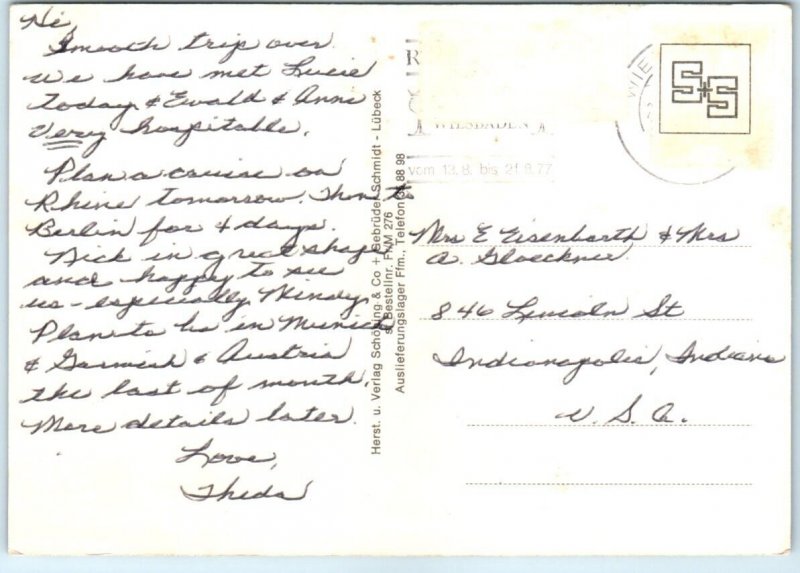 Hi,
Smooth trip over.
We have met Lucie
today & Ewald & Anne
Very hospitable.
Plan a cruise on
Rhine tomorrow. Then to
Berlin for 4 days.
Nick in great shape
and happy to see
us - especially Windy.
Plan to be in Munich
& Garmish & Austria
the last of month.
More details later.
Love,
Theda
Herst. u. Verlag Schöning & Co + Gebrüder Schmidt - Lübeck
Bestellnr. FWM 276
Auslieferungslager Ffm., Telefon 88 98
WIESBADEN
vom 13.8. bis 21.8.77
WIE
S+S
Mrs E Eisenbarth & Mrs
A. Gloeckner
846 Lincoln St
Indianapolis, Indiana
U.S.A.